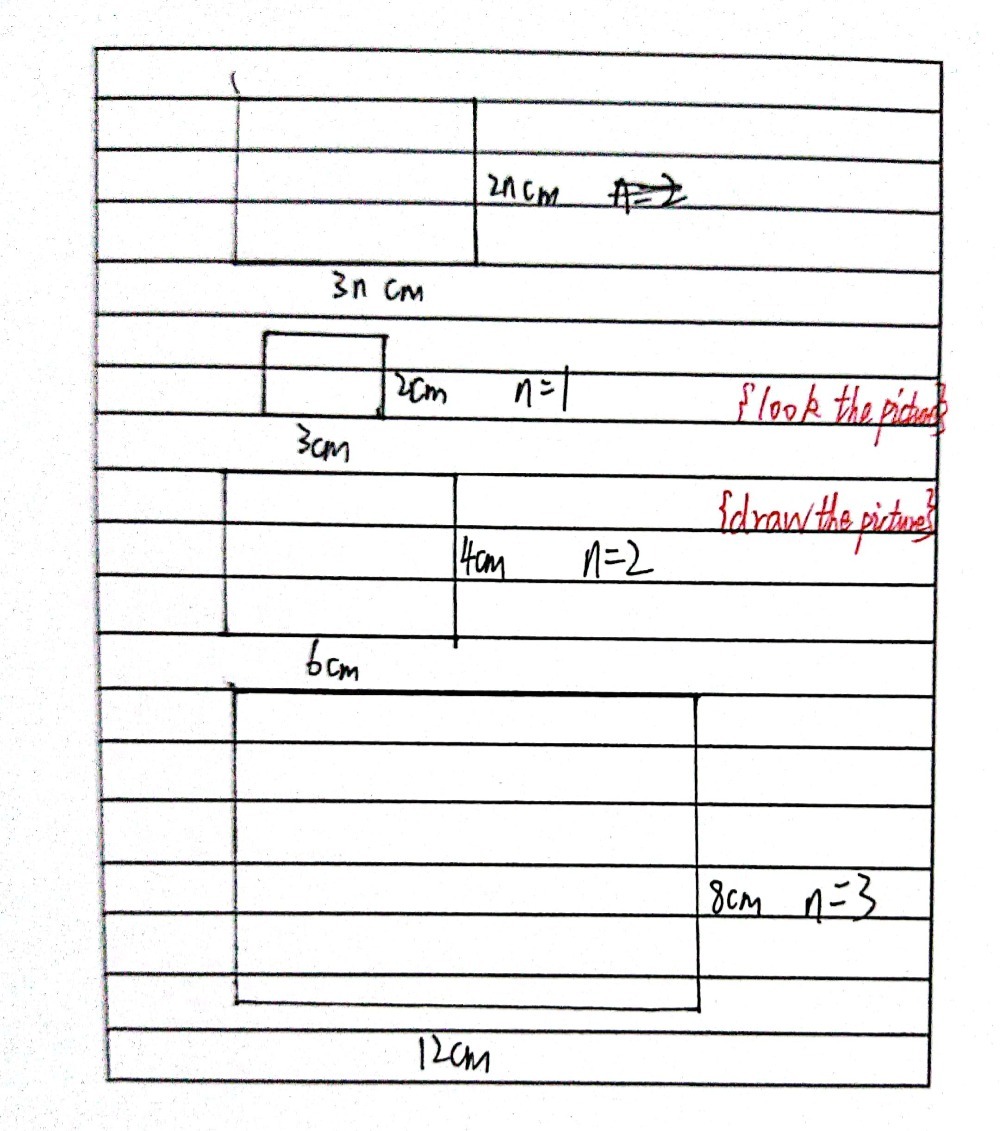 2n cm n=2
3n cm
2cm n=1 {look the picture}
3cm
{draw the picture}
4cm n=2
6cm
8cm n=3
12cm